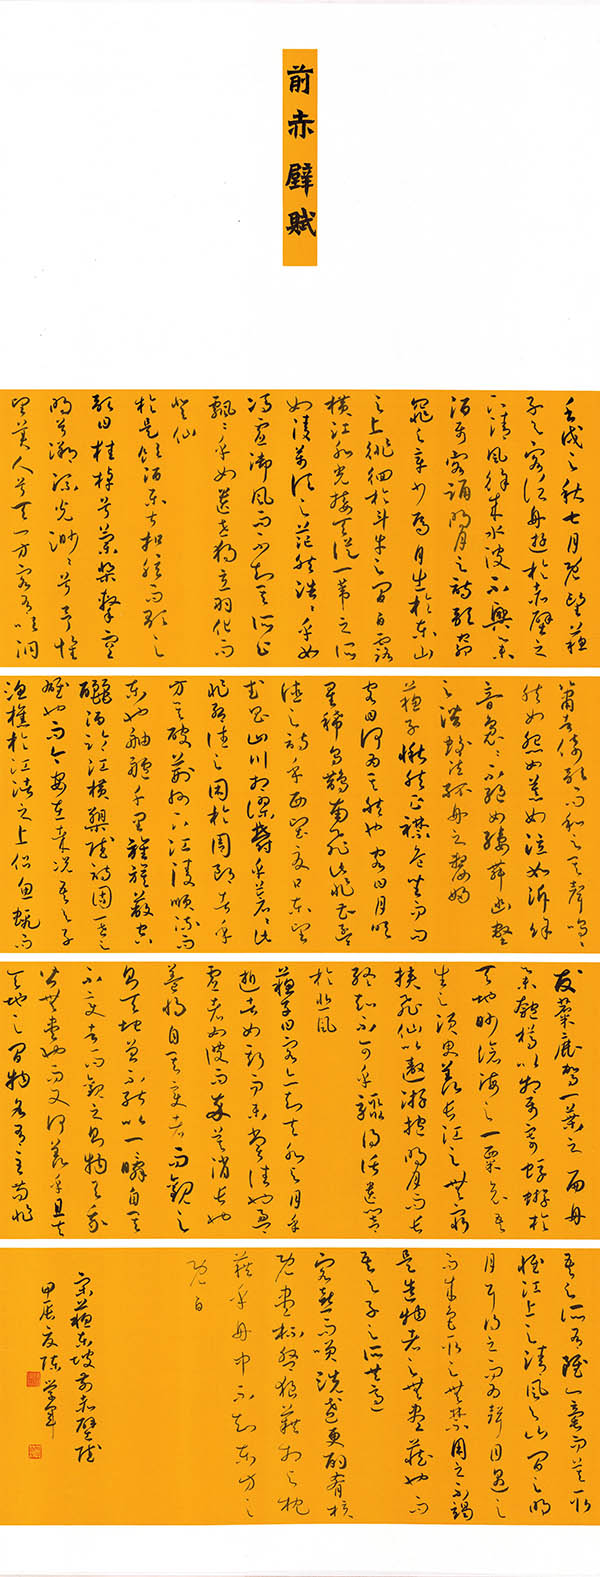 前赤壁賦
壬戌之秋七月既望蘇
子与客泛舟遊於赤壁之
下清風徐来水波不興舉
酒属客誦明月之詩歌窈
窕之章少焉月出於東山
之上徘徊於斗牛之間白露
横江水光接天縱一葦之所
如凌萬頃之茫然浩〻乎如
馮虛御風而不知其所止
飄〻乎如遺世獨立羽化而
登仙
於是飲酒樂甚扣舷而歌之
歌曰桂棹兮蘭槳擊空
明兮溯流光渺〻兮予懷
望美人兮天一方客有吹洞
簫者倚歌而和之其聲嗚〻
然如怨如慕如泣如訴餘
音裊〻不絕如縷舞幽壑
之潛蛟泣孤舟之嫠婦
蘇子愀然正襟危坐而问
客曰何为其然也客曰月明
星稀烏鵲南飛此非孟
德之詩乎西望夏口東望
武昌山川相繆鬱乎蒼〻此
非孟德之困於周郎者乎
方其破荆州下江陵順流而
東也舳艫千里旌旗蔽空
釃酒臨江横槊賦詩固一世之
雄也而今安在哉况吾与子
漁樵於江渚之上侣魚蝦而
友麋鹿駕一葉之扁舟
舉匏樽以相屬寄蜉蝣於
天地渺滄海之一粟哀吾
生之須臾羡長江之無窮
挾飛仙以遨游抱明月而長
終知不可乎驟得託遺響
於悲風
蘇子曰客亦知夫水与月乎
逝者如斯而未嘗往也盈
虛者如彼而卒莫消長也
蓋將自其變者而觀之
則天地曾不能以一瞬自其
不变者而觀之則物与我
皆無盡也而又何羡乎且夫
天地之間物各有主苟非
吾之所有雖一毫而莫取
惟江上之清風与山間之明
月耳得之而为聲目遇之
而成色取之無禁用之不竭
是造物者之無盡藏也而
吾与子之所共適
客喜而笑洗盞更酌肴核
既盡杯盤狼藉相与枕
藉乎舟中不知東方之
既白
宋蘇東坡前赤壁賦
甲辰夏陈学军